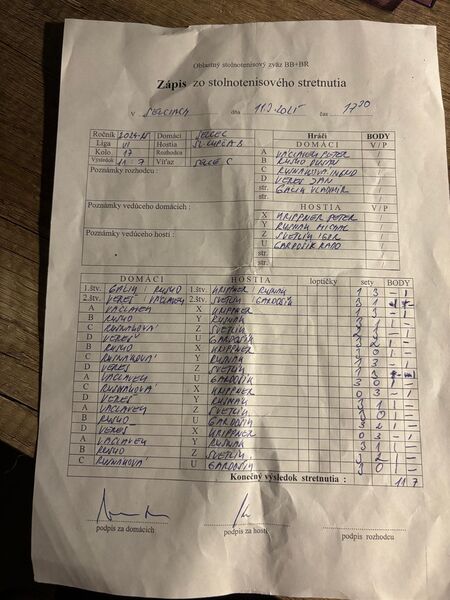 Oblastný stolnotenisový zväz BB+BR
Zápis zo stolnotenisového stretnutia
V SELCIACH dňa 11.3.2025 čas 17 30
Ročník 2024-25 Domáci SELCE C
Liga VI Hostia SL. ĽUPČA B
Kolo 17 Rozhodca
Výsledok 11 7 Víťaz SELCE C
Poznámky rozhodcu :
Poznámky vedúceho domácich :
Poznámky vedúceho hostí :
Hráči BODY
DOMÁCI V/P
A VACLAVEK PETER
B RUSKO
C RUSNAKOVÁ INGRID
D VEREŠ JÁN
str. GALIK VLADIMÍR
HOSTIA V/P
X KRIPPNER PETER
Y RUSNAK MICHAL
Z SVETLÍK IGOR
U GARDOŠÍK RADO
str.
str.
DOMÁCI HOSTIA loptičky sety BODY
1.štv. GALIK RUSKO 1.štv. KRIPPNER RUSNAK 1 3 - 1
2.štv. VEREŠ VACLAVEK 2.štv. SVETLÍK GARDOŠÍK 3 1
A VACLAVEK X KRIPPNER 1 3 - 1
B RUSKO Y RUSNAK
C RUSNAKOVÁ Z SVETLÍK
D VEREŠ U GARDOŠÍK
B RUSKO X KRIPPNER
C RUSNAKOVÁ Y RUSNAK
D VEREŠ Z SVETLÍK
A VACLAVEK U GARDOŠÍK
C RUSNAKOVÁ X KRIPPNER 0 3 - 1
D VEREŠ Y RUSNAK
A VACLAVEK Z SVETLÍK
B RUSKO U GARDOŠÍK
D VEREŠ X KRIPPNER 0 3 - 1
A VACLAVEK Y RUSNAK
B RUSKO Z SVETLÍK
C RUSNAKOVÁ U GARDOŠÍK
Konečný výsledok stretnutia : 11 7
podpis za domácich podpis za hostí podpis rozhodcu